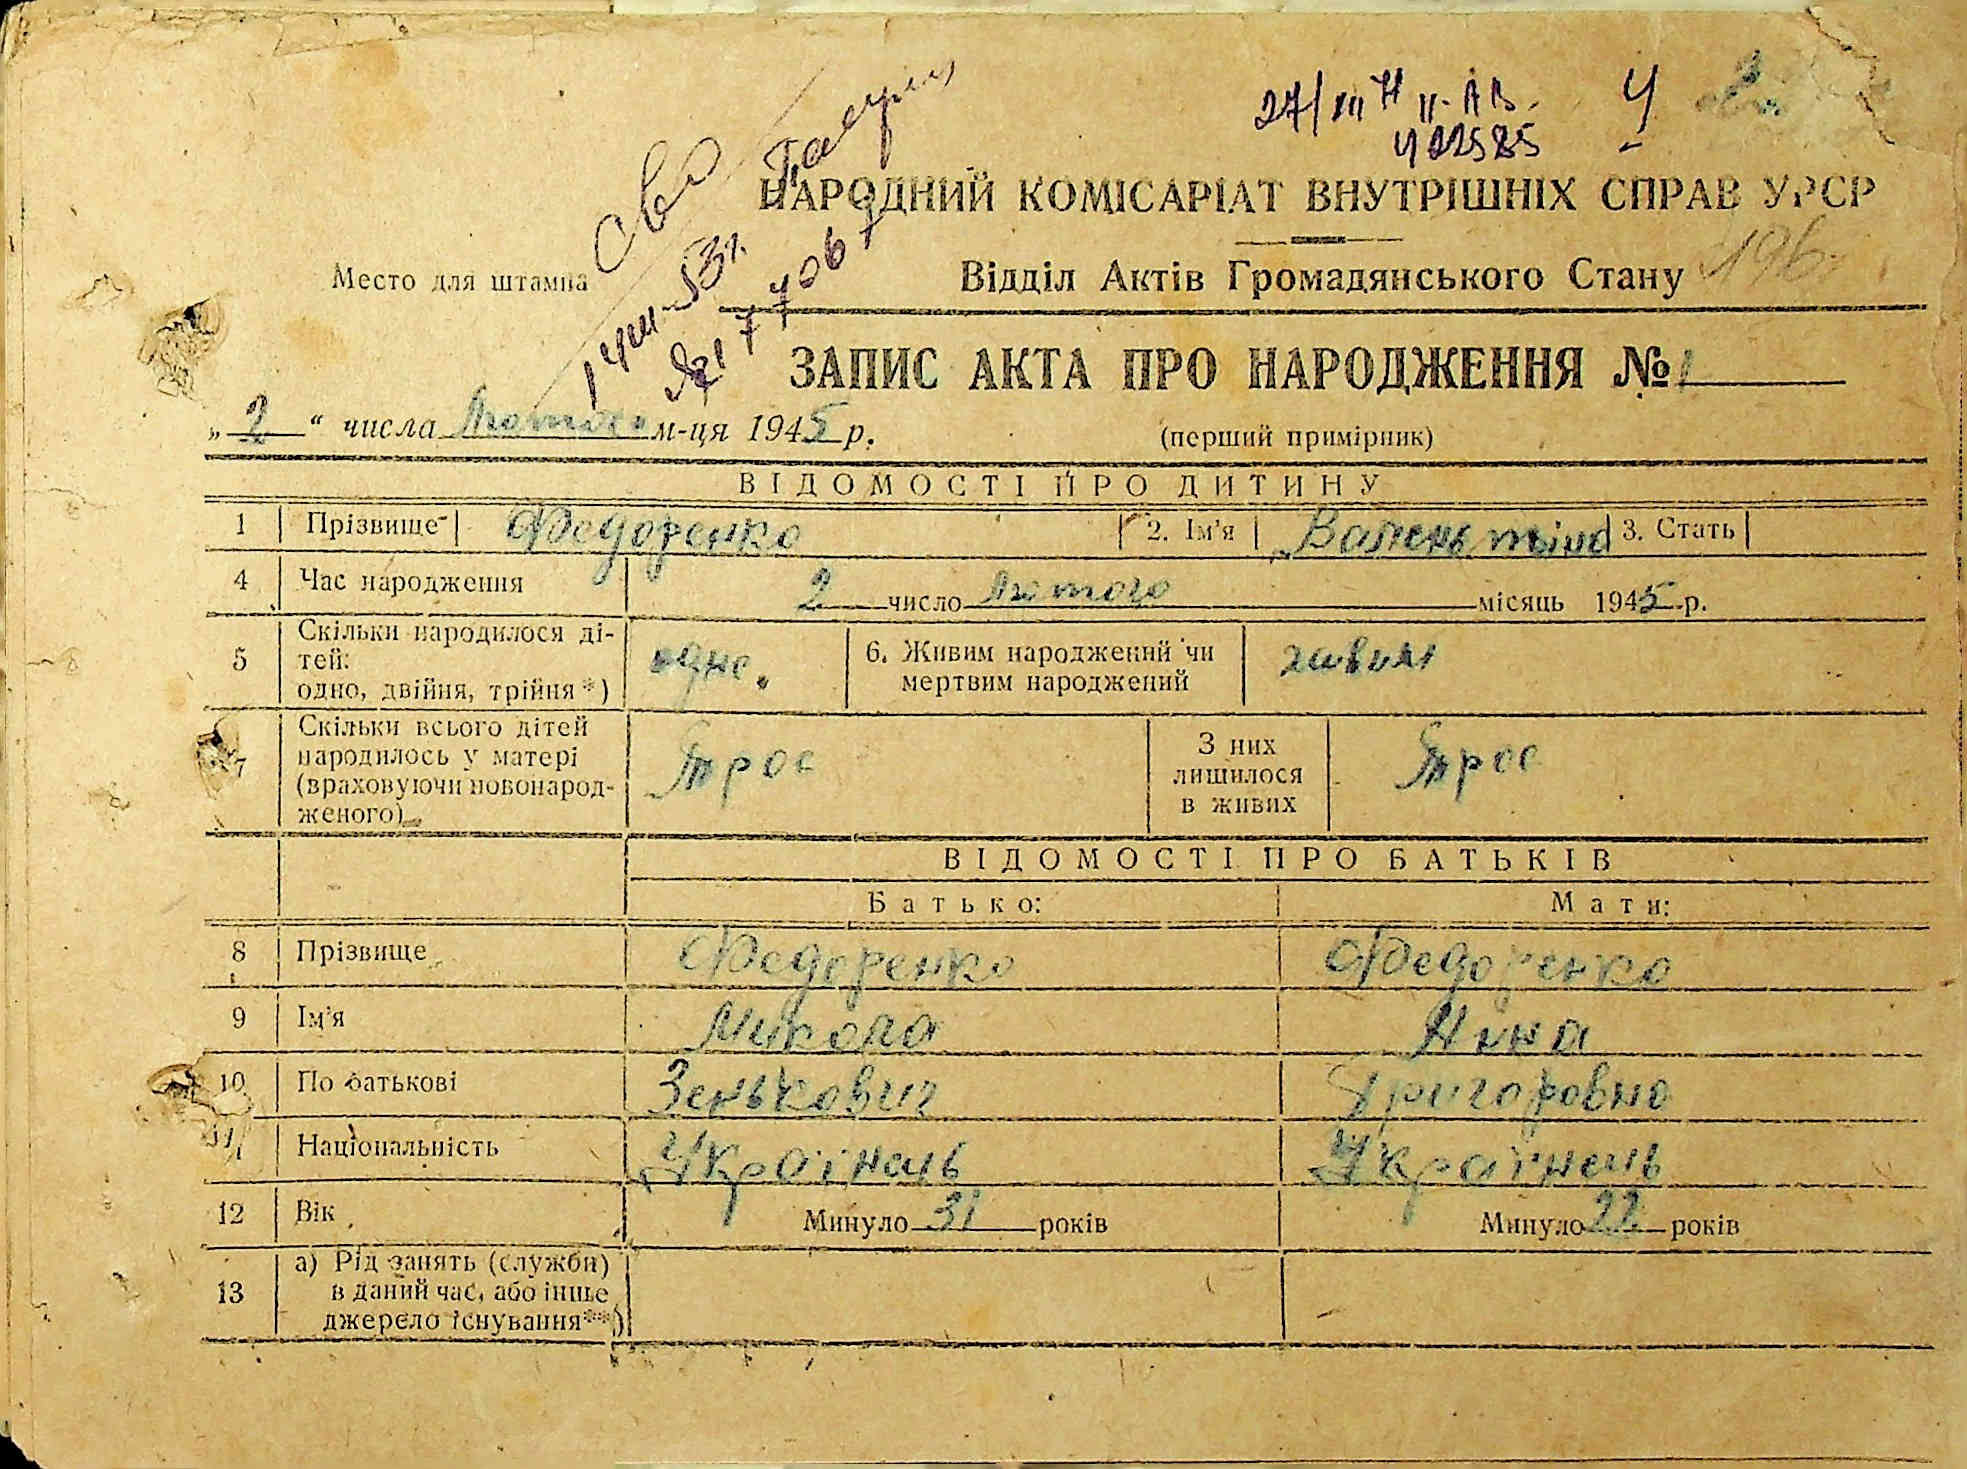 27/III 
422585
НАРОДНИЙ КОМІСАРІАТ ВНУТРІШНІХ СПРАВ УРСР
Место для штампа
Відділ Актів Громадянського Стану
196
ЗАПИС АКТА ПРО НАРОДЖЕННЯ № 1
„ 2 “ числа Лютого м-ця 1945 р.
(перший примірник)
ВІДОМОСТІ ПРО ДИТИНУ
1 Прізвище Федоренко 2. Ім'я Валентина 3. Стать
4 Час народження 2 число Лютого місяць 1945 р.
5 Скільки народилося ді-
тей:
одно, двійня, трійня*) одне. 6. Живим народжений чи
мертвим народжений живим
7 Скільки всього дітей
народилось у матері
(враховуючи новонарод-
женого) Трое З них
лишилося
в живих Трое
ВІДОМОСТІ ПРО БАТЬКІВ
Батько: Мати:
8 Прізвище Федоренко Федоренко
9 Ім'я Микола Нина
10 По батькові Зенькович Григоровна
11 Національність Українець Українець
12 Вік Минуло 31 років Минуло 22 років
13 а) Рід занять (служби)
в даний час, або інше
джерело існування**)